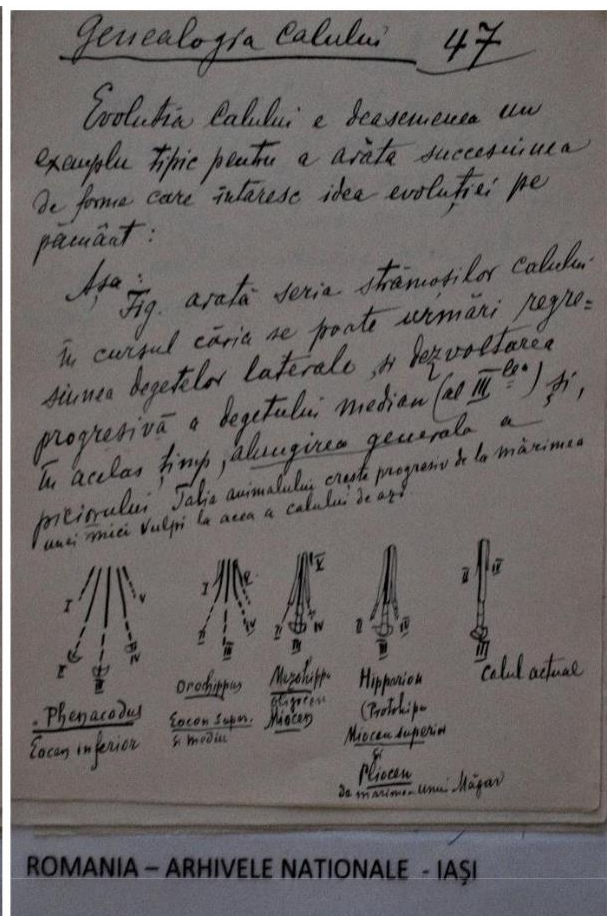 Genealogia Calului 47
Evoluția Calului e deasemenea un
exemplu tipic pentru a arăta succesiunea
de forme care întăresc idea evoluției pe
pământ:
Așa:
Fig. arată seria strămoșilor calului
în cursul căria se poate urmări regre=
siunea degetelor laterale și dezvoltarea
progresivă a degetului median (al III lea) și,
în acelas timp, alungirea generala a
piciorului. Talia animalului crește progresiv de la mărimea
unei mici vulpi la acea a calului de azi.
I II III IV V
I II III IV V
II III IV V
II III IV
II III IV
Phenacodus
Eocen inferior
Orohippus
Eocen super.
și mediu
Mezohippu
oligocen
Miocen
Hipparion
(Protohipu
Miocen superior
și
Pliocen
de mărimea unui Măgar
Calul actual
ROMANIA – ARHIVELE NATIONALE - IAȘI